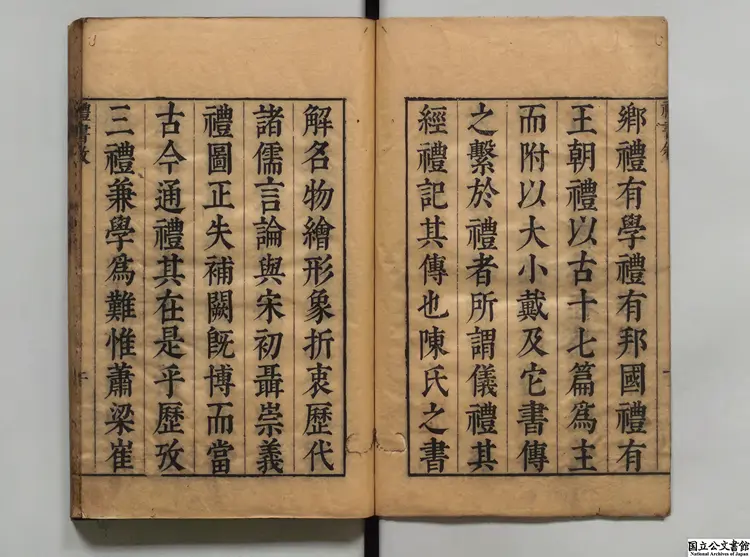 鄉禮有學禮有邦國禮有
王朝禮以古十七篇爲主
而附以大小戴及它書傳
之繫於禮者所謂儀禮其
經禮記其傳也陳氏之書
解名物繪形象折衷歷代
諸儒言論與宋初聶崇義
禮圖正失補闕旣博而當
古今通禮其在是乎歷攷
三禮兼學爲難惟蕭梁崔
禮書
国立公文書館
National Archives of Japan